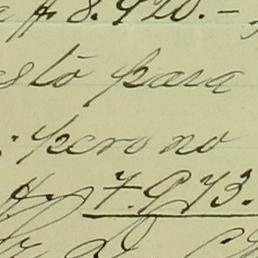 $ 8.920.-
esto para
pero no
$ 7.973.